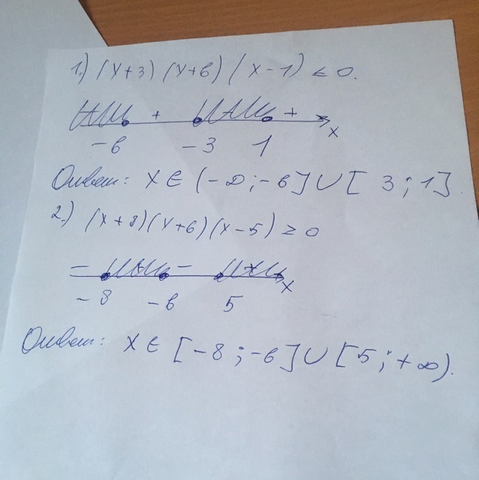 1.) (x+3)(x+6)(x-1) ≤ 0.
+ +
x
-6 -3 1
Ответ: x ∈ (-∞; -6] ∪ [ 3; 1].
2.) (x+8)(x+6)(x-5) ≥ 0
- + - +
x
-8 -6 5
Ответ: x ∈ [-8; -6] ∪ [5; +∞).